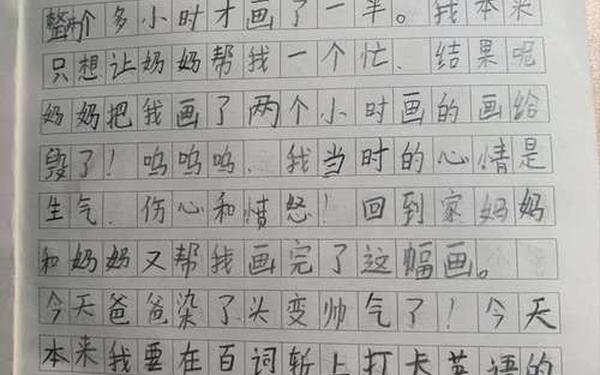 整两个多小时才画了一半。我本来
只想让奶奶帮我一个忙、结果呢
奶奶把我画了两个小时画的画给
毁了！呜呜呜、我当时的心情是
生气、伤心和愤怒！回到家妈妈
和奶奶又帮我画完了这幅画。
今天爸爸染了头变帅气了！今天
本来我要在百词斩上打卡英语的